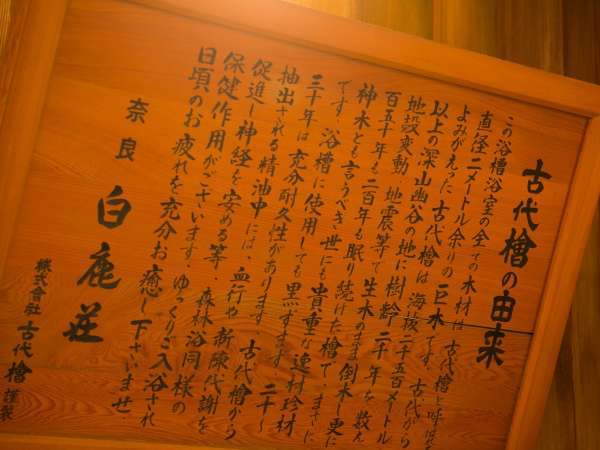 古代檜の由来
この浴槽浴室の全ての木材は古代檜と呼ばれ
直径二メートル余りの巨木です。古代から
よみがえった古代檜は海抜二千五百メートル
以上の深山幽谷の地に樹齢二千年を数え
地殻変動、地震等で生木のまま倒木し更に
百五十年も二百年も眠り続けた檜で、まさに
神木とも言うべき世にも貴重な逸材珍材
です。浴槽に使用しても黒ずまず、二十〜
三十年は充分耐久性があります。古代檜から
抽出される精油中には、血行や新陳代謝を
促進し神経を安める等、森林浴同様の
保健作用がございます。ゆっくりご入浴され
日頃のお疲れを充分お癒し下さいませ。
奈良 白鹿荘
株式會社 古代檜 謹製